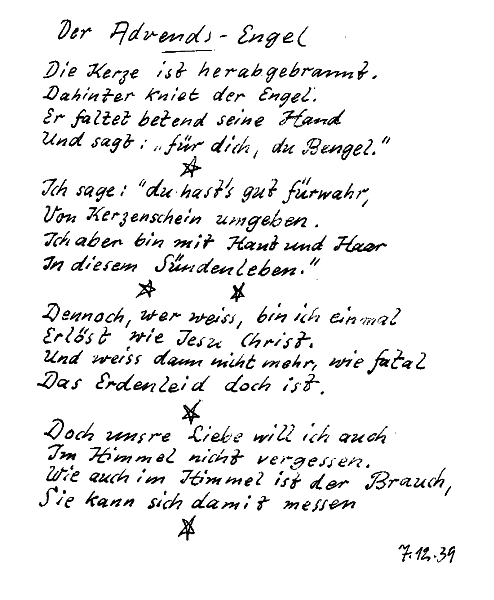 Der Advends-Engel
Die Kerze ist herabgebrannt.
Dahinter kniet der Engel.
Er faltet betend seine Hand
Und sagt: „für dich, du Bengel."
Ich sage: "du hast's gut fürwahr,
Von Kerzenschein umgeben.
Ich aber bin mit Haut und Haar
In diesem Sündenleben."
Dennoch, wer weiss, bin ich einmal
Erlöst wie Jesu Christ.
Und weiss dann nicht mehr, wie fatal
Das Erdenleid doch ist.
Doch unsre Liebe will ich auch
Im Himmel nicht vergessen.
Wie auch im Himmel ist der Brauch,
Sie kann sich damit messen
7.12.39